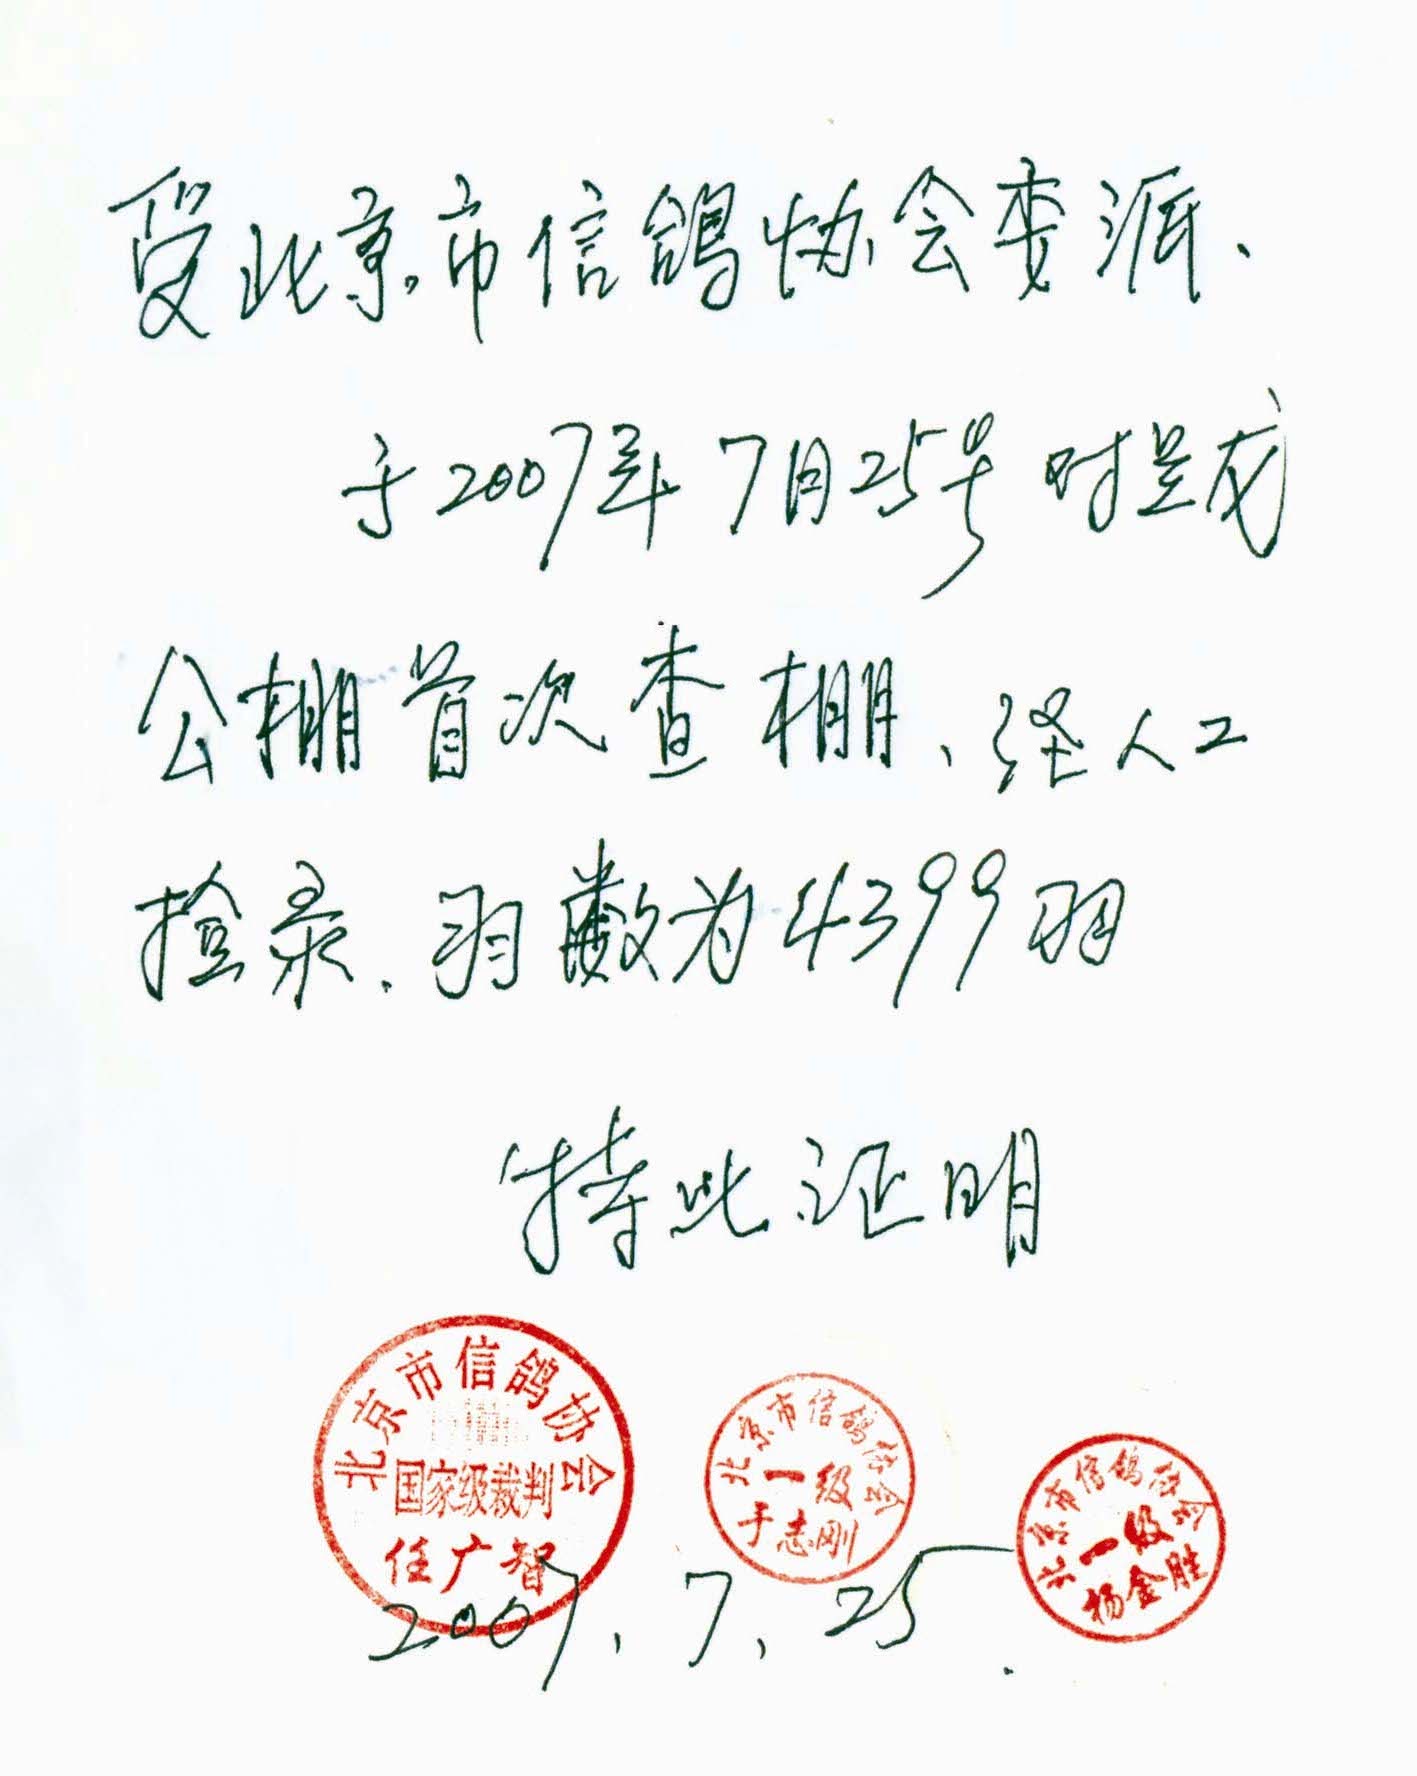 受北京市信鸽协会委派、
于2007年7月25号对昊龙
公棚首次查棚、经人工
捡录、羽数为4399羽
特此证明
北京市信鸽协会
国家级裁判
任广智
北京市信鸽协会
一级
于志刚
北京市信鸽协会
一级
杨金胜
2007、7、25.